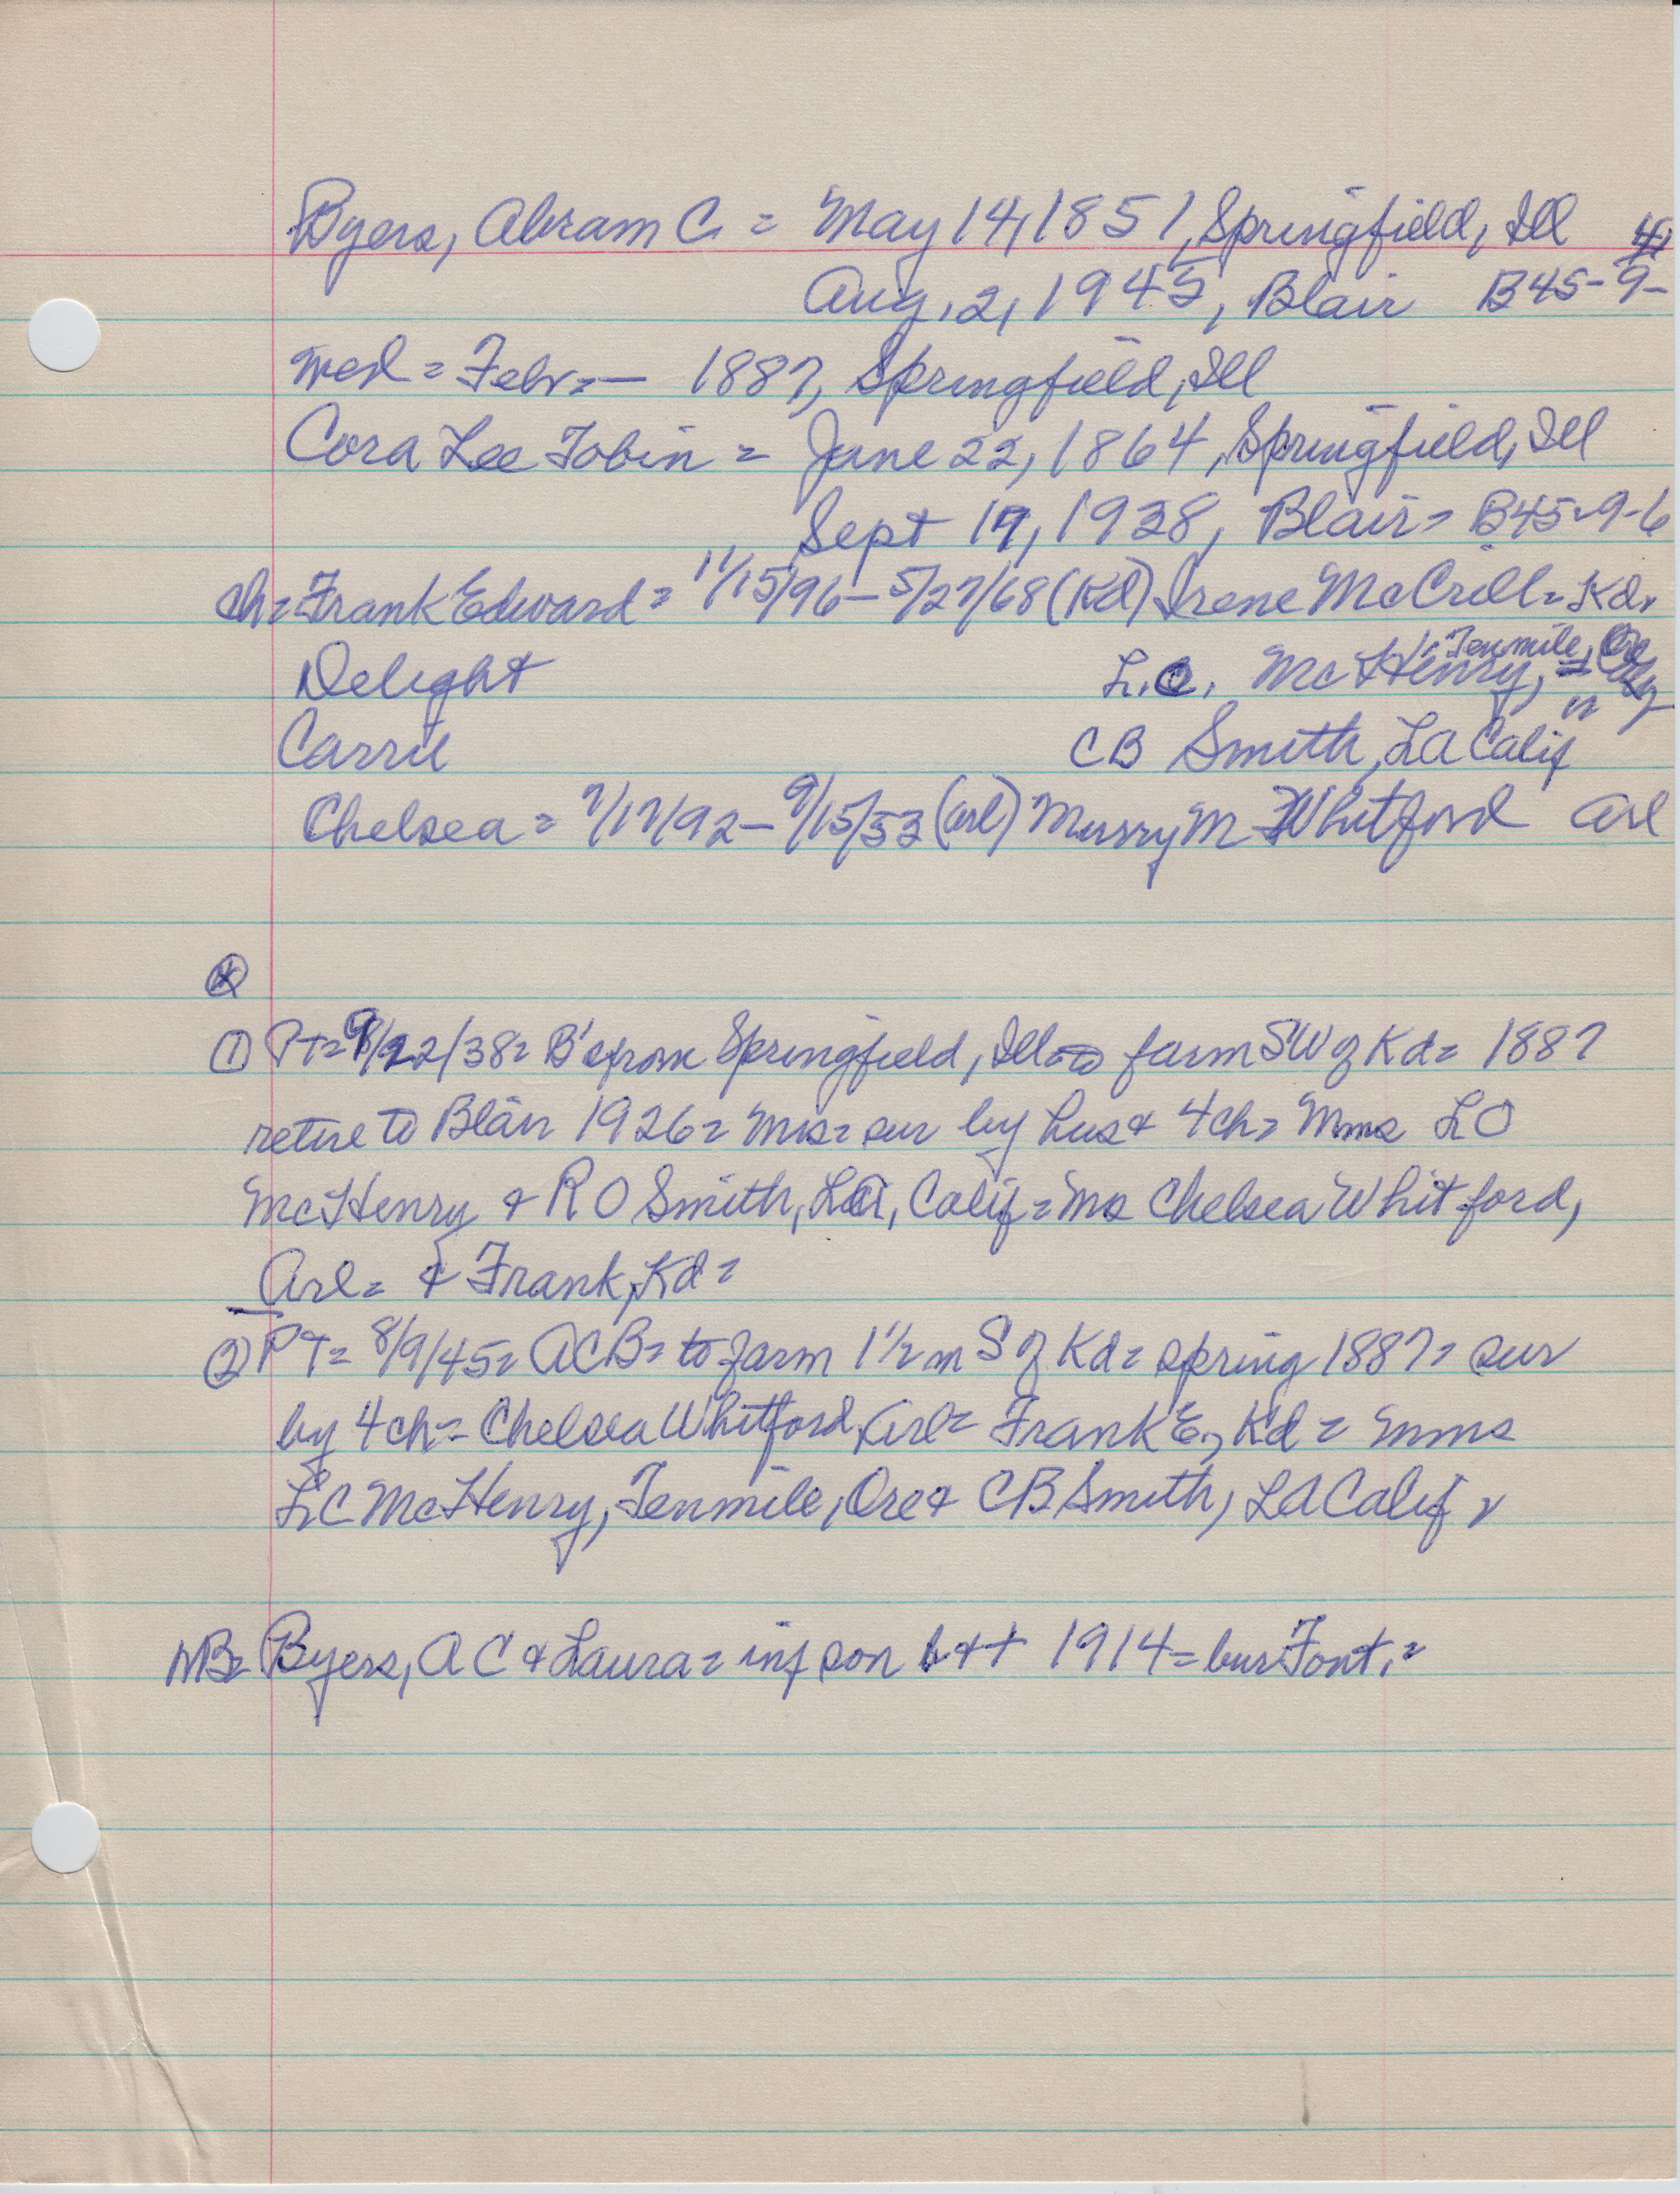 Byers, Abram C. = May 14, 1851, Springfield, Ill
Aug. 2, 1945, Blair B45-9-
wed = Febr = — 1887, Springfield, Ill
Cora Lee Tobin = June 22, 1864, Springfield, Ill
Sept 19, 1938, Blair = B45-9-6
ch = Frank Edward = 11/15/96 — 5/27/68 (Kd) Irene McCrill = Kd =
Tenmile, Ore
Delight L.C. McHenry, =
Carrie CB Smith, LA Calif
Chelsea = 7/17/92 — 9/15/53 (Arl) Murry M Whitford Arl
① PT = 9/22/38 = B's from Springfield, Ill = to farm SW of Kd = 1887
retire to Blair 1926 = Mrs = sur by hus + 4 ch = Mmes LO
McHenry + R O Smith, LA, Calif = Ms Chelsea Whitford,
Arl = & Frank, Kd =
② PT = 8/9/45 = ACB = to farm 1 1/2 m S of Kd = spring 1887 = sur
by 4 ch = Chelsea Whitford, Arl = Frank E., Kd = Mms
LC McHenry, Tenmile, Ore + CB Smith, LA Calif =
NB = Byers, A C & Laura = inf son b + + 1914 = bur Font. =